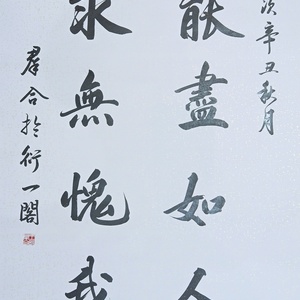 次辛丑秋月
能盡如人
求無愧我
羣合於衍一閣